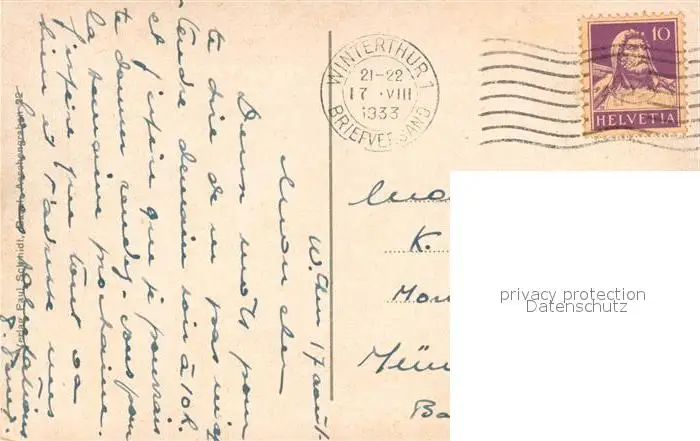 W'thur 17 août
Mon cher
Deux mots pour
te dire de ne pas m'at
tendre demain soir à 10 h.
et j'espère que je pourrais
te donner rendez-vous pour
la semaine prochaine.
J'espère que tout va
bien et t'adresse mes
salutations
WINTERTHUR 1
21-22
17 .VIII
1933
BRIEFVERSAND
10
HELVETIA
K.
Mon
Mün
Ba
privacy protection
Datenschutz
Verlag Paul Schmidl,